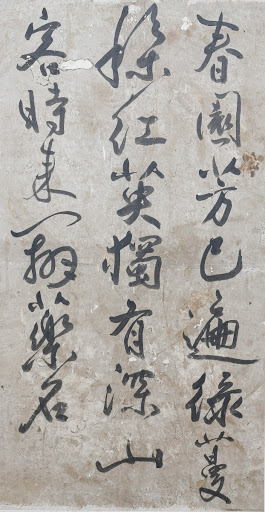 春園芳已遍綠蔓
雜紅英獨有深山
客時來辨藥名